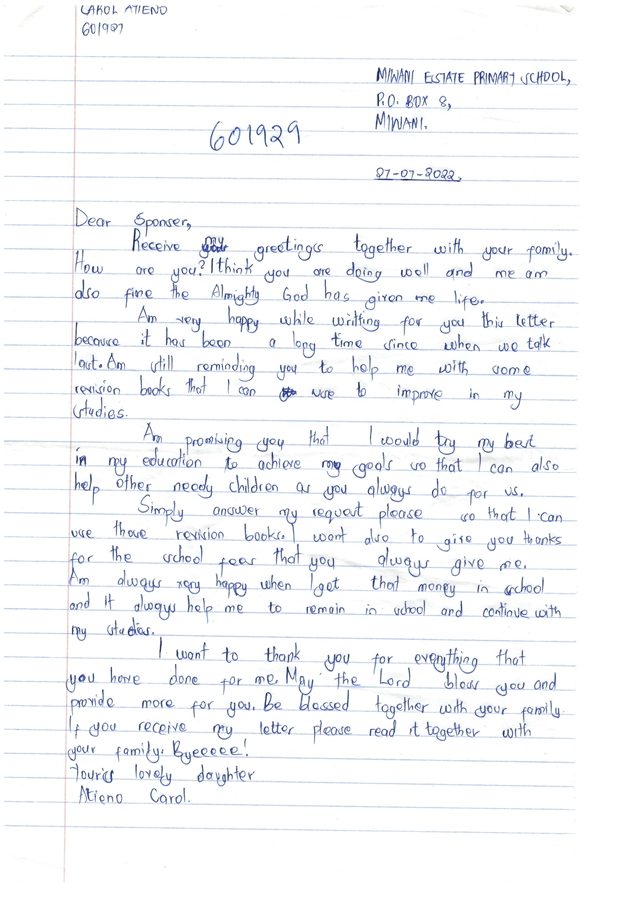 CAROL ATIENO
601927
MIWANI ESTATE PRIMARY SCHOOL,
P.O. BOX 8,
MIWANI.
601929
27-07-2022.
Dear Sponser,
Receive my greetings together with your family.
How are you? I think you are doing well and me am
also fine the Almighty God has given me life.
Am very happy while writting for you this letter
because it has been a long time since when we talk
last. Am still reminding you to help me with some
revision books that I can use to improve in my
studies.
Am promising you that I would try my best
in my education to achieve my goals so that I can also
help other needy children as you always do for us.
Simply answer my request please so that I can
use those revision books. I want also to give you thanks
for the school fees that you always give me.
Am always very happy when I get that money in school
and it always help me to remain in school and continue with
my studies.
I want to thank you for everything that
you have done for me. May the Lord bless you and
provide more for you. Be blessed together with your family.
If you receive my letter please read it together with
your family. Byeeeee!
lovely daughter
Atieno Carol.